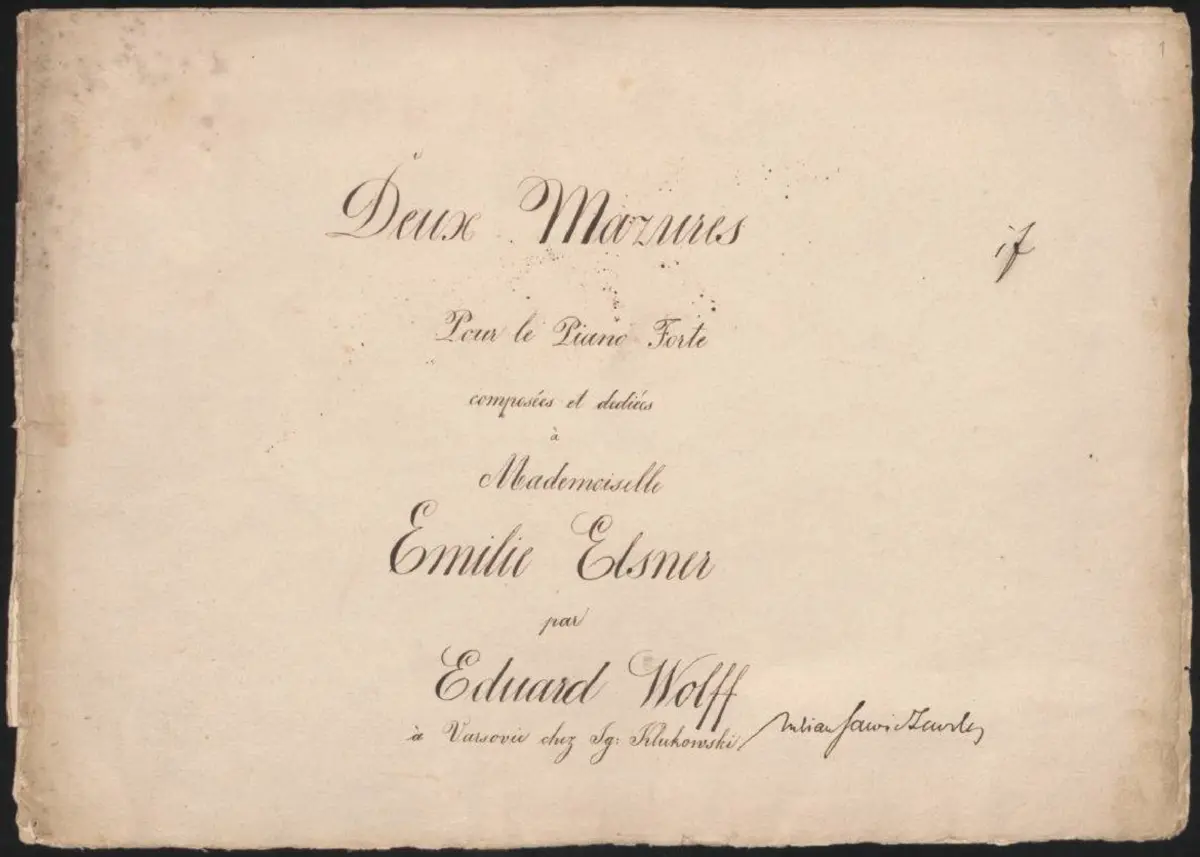 1
Deux Mazures
Pour le Piano Forte
composées et dediées
à
Mademoiselle
Emilie Elsner
par
Eduard Wolff
à Varsovie chez Sg: Klukowski